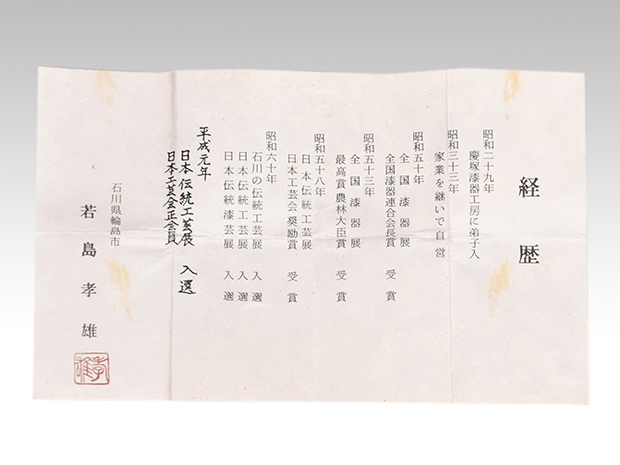 経歴
昭和二十九年
慶塚漆器工房に弟子入
昭和三十三年
家業を継いで自営
昭和五十年
全国漆器展
全国漆器連合会長賞 受賞
昭和五十三年
全国漆器展
最高賞農林大臣賞 受賞
昭和五十八年
日本伝統工芸展
日本工芸会奨励賞 受賞
昭和六十年
石川の伝統工芸展 入選
日本伝統工芸展 入選
日本伝統漆芸展 入選
平成元年
日本伝統工芸展 入選
日本工芸会正会員
石川県輪島市
若島孝雄
孝雄